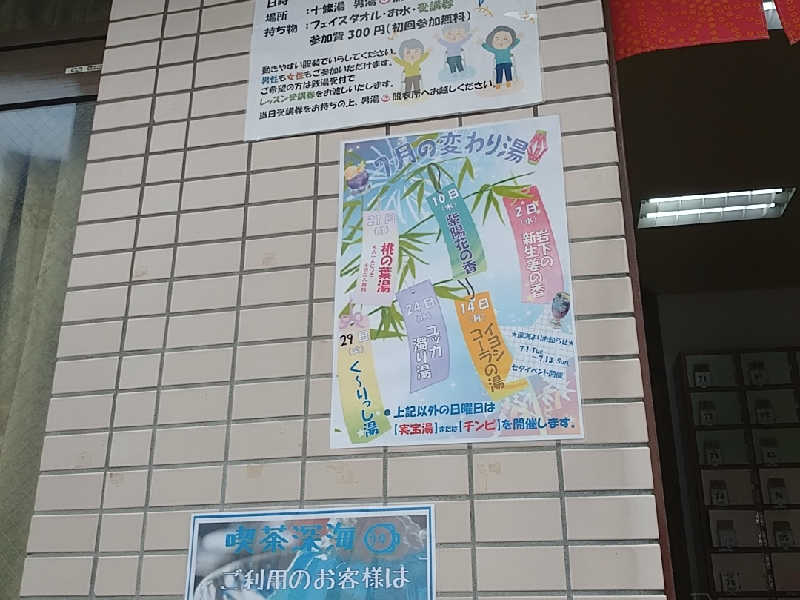 日時
場所 : 十條湯 男湯
持ち物 : フェイスタオル・お水・受講券
参加費 300円(初回参加無料)
動きやすい服装でいらしてください。
男性も女性もご参加いただけます。
ご希望の方は銭湯受付で
レッスン受講券をお渡しいたします。
当日受講券をお持ちの上、男湯 脱衣所へお越しください。
7月の変わり湯
2日
(水)
岩下の
新生姜の香
10日
(木)
紫陽花の香
14日
イヨシ
コーラの湯
21日
桃の葉湯
24日
ユッカ
濁り湯
29日
く〜りっし湯
7.1 Tue
七夕イベント開催
上記以外の日曜日は
【実宝湯】または【チンピ】を開催します。
喫茶深海
ご利用のお客様は